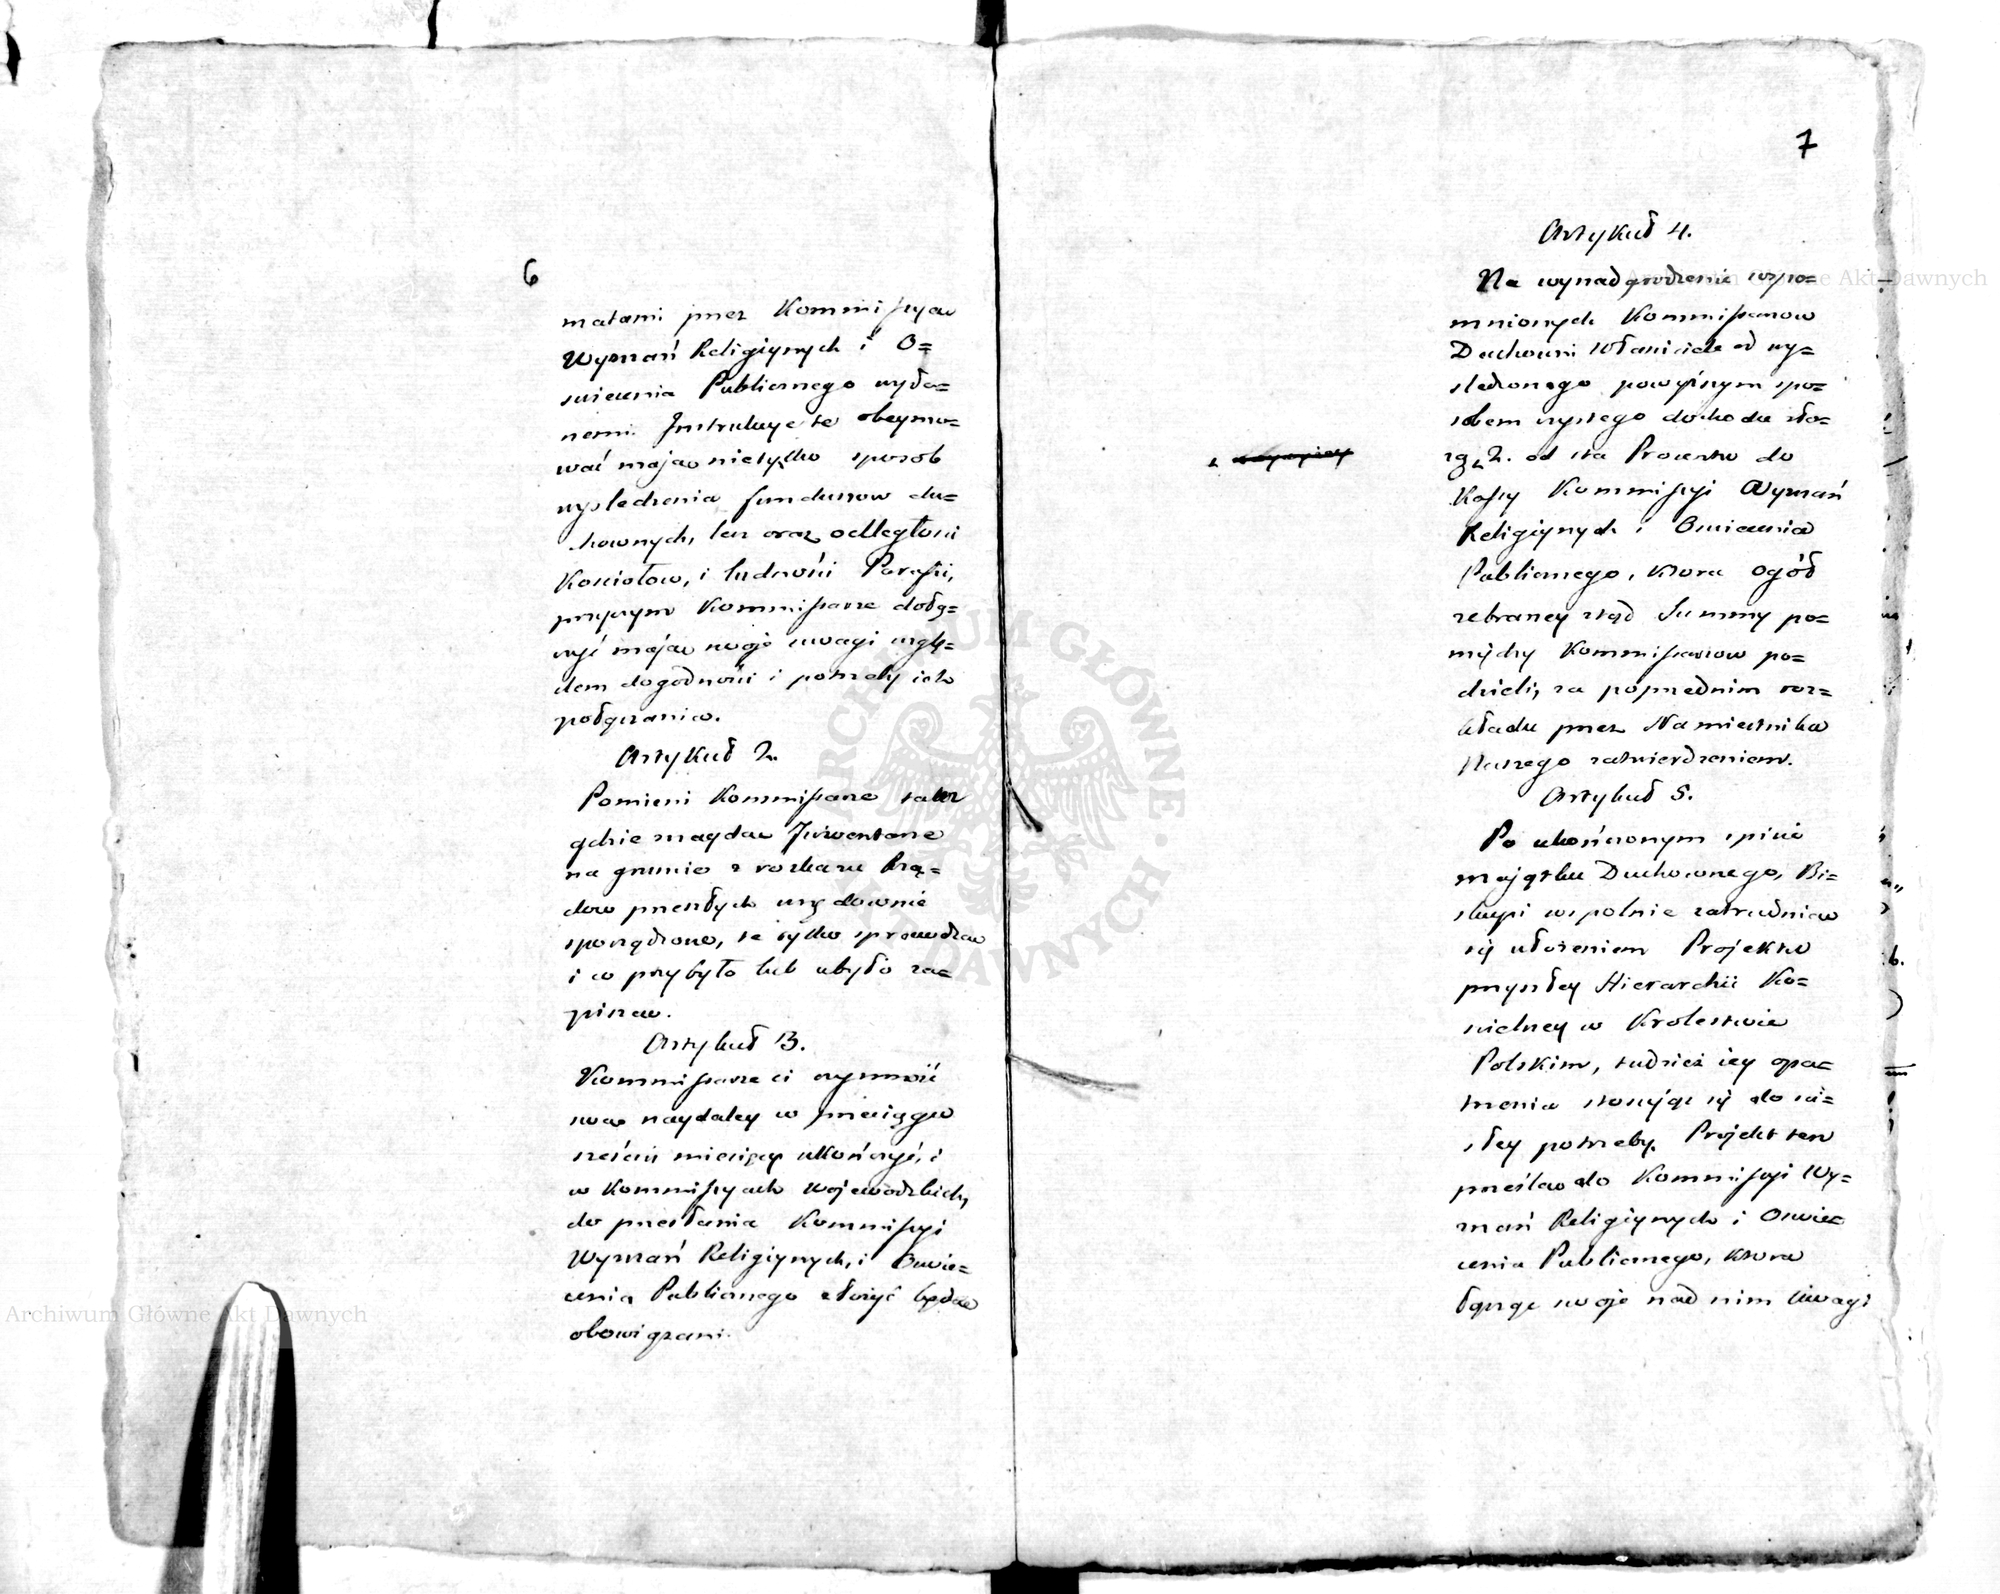 6
matami przez Kommissyą
Wyznań Religiynych i O=
swiecenia Publicznego wyda=
nemi. Instrukcye te obeymo=
wać maią nietylko sposob
wysledzenia funduszow du=
chownych, lecz oraz odległości
Kosciołow, i ludności Parafii,
przyczym Kommissarze dołą=
czyć maią swoje uwagi wzglę=
dem dogodności i potrzeby ich
połączenia.
Artykuł 2.
Pomienieni Kommissarze tam
gdzie znaydą Inwentarze
na gruncie z rozkazu Rzą=
dow przeszłych urzędownie
sporządzone, te tylko sprawdzą
i co przybyło lub ubyło za=
piszą.
Artykuł 3.
Kommissarze ci czynność
swą naydaley w przeciągu
sześciu miesięcy ukończyć, i
w Kommissyach Wojewodzkich,
do przesłania Kommissyi
Wyznań Religiynych, i Oswie=
cenia Publicznego złożyć będą
obowiązani.
7
Artykuł 4.
Na wynadgrodzenie wspo=
mnionych Kommissarzow
Duchowni Właściciele od wy=
sledzonego powyższym spo=
sobem czystego dochodu zło=
żą 2. od sta Procentu do
Kassy Kommissyi Wyznań
Religiynych i Oswiecenia
Publicznego, ktora ogół
zebraney ztąd Summy po=
między Kommissarzow po=
dzieli, za poprzednim roz=
kładu przez Namiestnika
Naszego zatwierdzeniem.
Artykuł 5.
Po ukończonym spisie
maiątku Duchownego, Bi=
skupi wspolnie zatrudnią
się ułożeniem Projektu
przyszłey Hierarchii Ko=
scielney w Krolestwie
Polskim, tudzież iey opa=
trzenia stosuiąc się do sci=
słey potrzeby. Projekt ten
prześlą do Kommissyi Wy=
znań Religiynych i Oswie=
cenia Publicznego, ktora
łącząc swoje nad nim Uwagi
ARCHIWUM GŁÓWNE AKT DAWNYCH
Archiwum Główne Akt Dawnych
Archiwum Główne Akt Dawnych